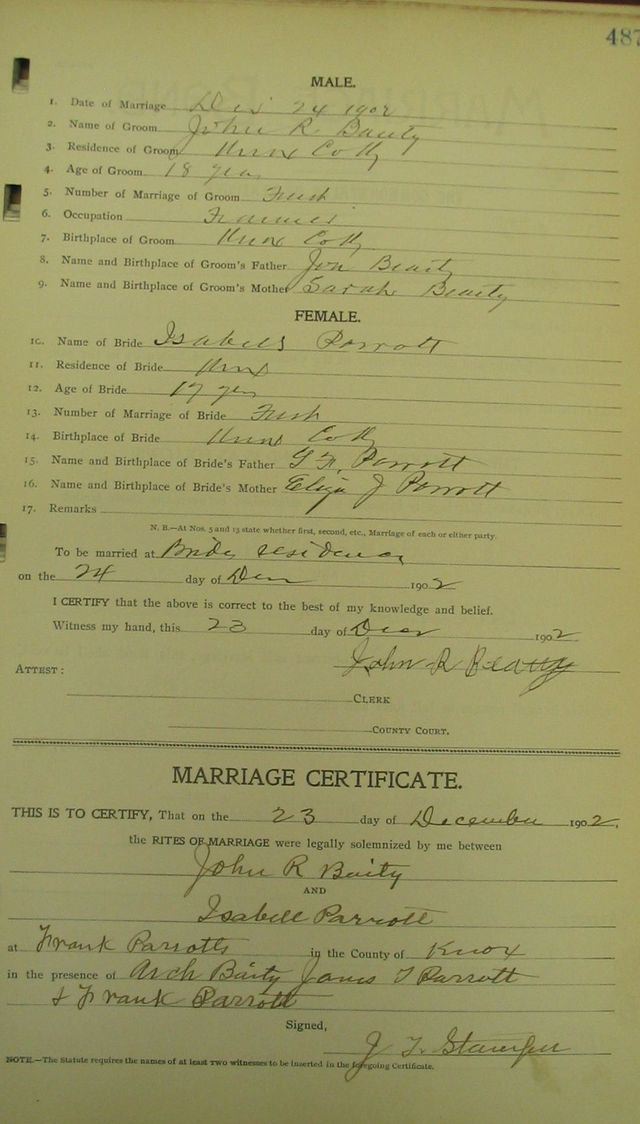 487
MALE.
1. Date of Marriage Dec 24 1902
2. Name of Groom John R Bauty
3. Residence of Groom Knox Co Ky
4. Age of Groom 18 years
5. Number of Marriage of Groom First
6. Occupation Farmer
7. Birthplace of Groom Knox Co Ky
8. Name and Birthplace of Groom's Father Jon Beaity
9. Name and Birthplace of Groom's Mother Sarah Beaity
FEMALE.
10. Name of Bride Isabell Parrott
11. Residence of Bride Knox
12. Age of Bride 17 yrs
13. Number of Marriage of Bride First
14. Birthplace of Bride Knox Co Ky
15. Name and Birthplace of Bride's Father G F. Parrott
16. Name and Birthplace of Bride's Mother Eliza J Parrott
17. Remarks
N. B.—At Nos. 5 and 13 state whether first, second, etc., Marriage of each or either party.
To be married at Brides residence
on the 24 day of Dec 1902
I CERTIFY that the above is correct to the best of my knowledge and belief.
Witness my hand, this 23 day of Dec 1902
John R Beaty
ATTEST:
CLERK
COUNTY COURT.
MARRIAGE CERTIFICATE.
THIS IS TO CERTIFY, That on the 23 day of December 1902.
the RITES OF MARRIAGE were legally solemnized by me between
John R Baity
AND
Isabell Parrott
at Frank Parrotts in the County of Knox
in the presence of Arch Baity James T Parrott
& Frank Parrott
Signed,
J T Stamper
NOTE.—The Statute requires the names of at least two witnesses to be inserted in the foregoing Certificate.